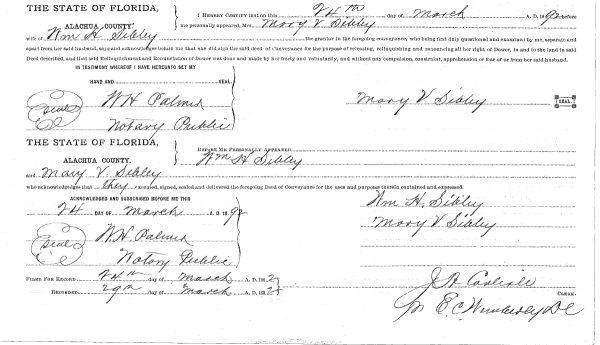 THE STATE OF FLORIDA,
ALACHUA COUNTY.
I HEREBY CERTIFY that on this 24th day of March A. D. 1892 before
me personally appeared, Mrs. Mary V Sibley
wife of Wm H. Sibley the grantor in the foregoing conveyance, who being first duly questioned and examined by me, separate and
apart from her said husband, says and acknowledges before me that she did sign the said deed of Conveyance for the purpose of releasing, relinquishing and renouncing all her right of Dower, in and to the land in said
Deed described, and that said Relinquishment and Renunciation of Dower was made by her freely and voluntarily, and without any compulsion, constraint, apprehension or fear of or from her said husband.
IN TESTIMONY WHEREOF I HAVE HEREUNTO SET MY
HAND AND SEAL.
W H Palmer
Seal
Notary Public
Mary V. Sibley SEAL.
THE STATE OF FLORIDA,
ALACHUA COUNTY.
BEFORE ME PERSONALLY APPEARED
Wm H Sibley
and Mary V. Sibley
who acknowledges that they executed, signed, sealed and delivered the foregoing Deed of Conveyance for the uses and purposes therein contained and expressed.
ACKNOWLEDGED AND SUBSCRIBED BEFORE ME THIS
24 DAY OF March A. D. 1892
W. H. Palmer
Seal
Notary Public
Wm H. Sibley
Mary V Sibley
FILED FOR RECORD 24th day of March A. D. 1892
RECORDED 29th day of March A. D. 1892
J A Carlisle
CLERK.
E. C. Wimberley DC